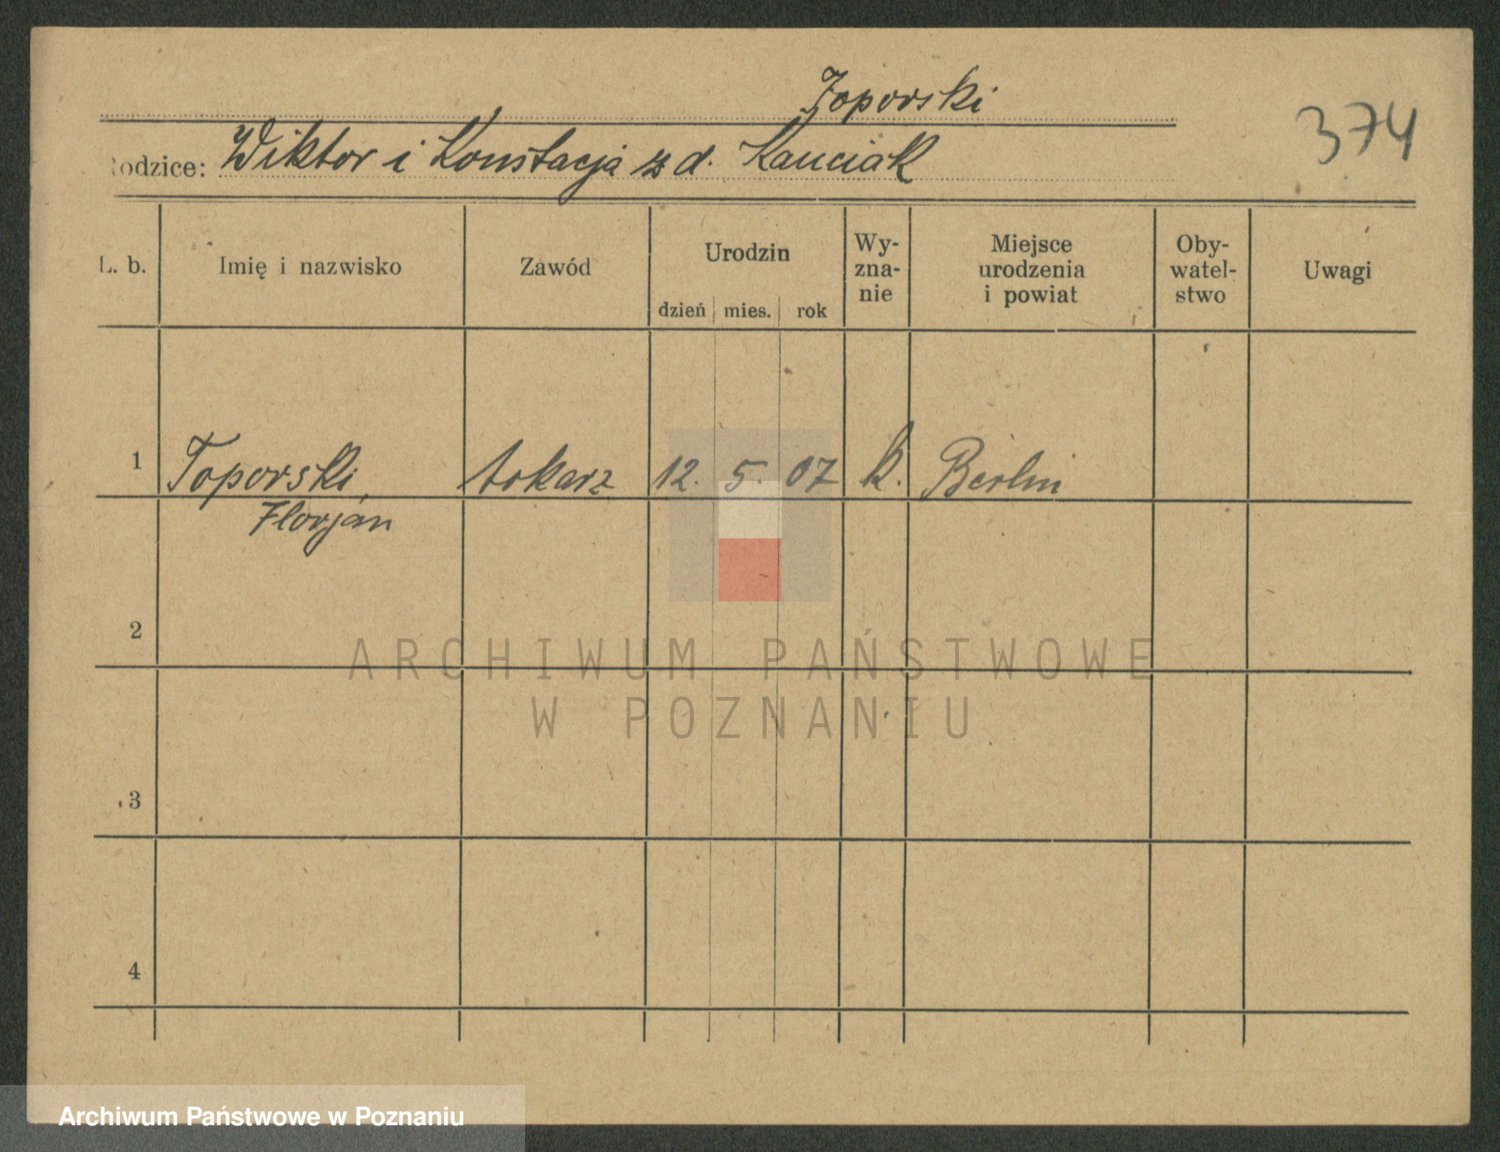 Toporski
374
Rodzice: Wiktor i Konstacja z d. Kauciak
L. b. Imię i nazwisko Zawód Urodzin dzień mies. rok Wy-zna-nie Miejsce urodzenia i powiat Oby-watel-stwo Uwagi
1 Toporski, tokarz 12. 5. 07 k. Berlin
Florjan
2
ARCHIWUM PAŃSTWOWE
W POZNANIU
3
4
Archiwum Państwowe w Poznaniu